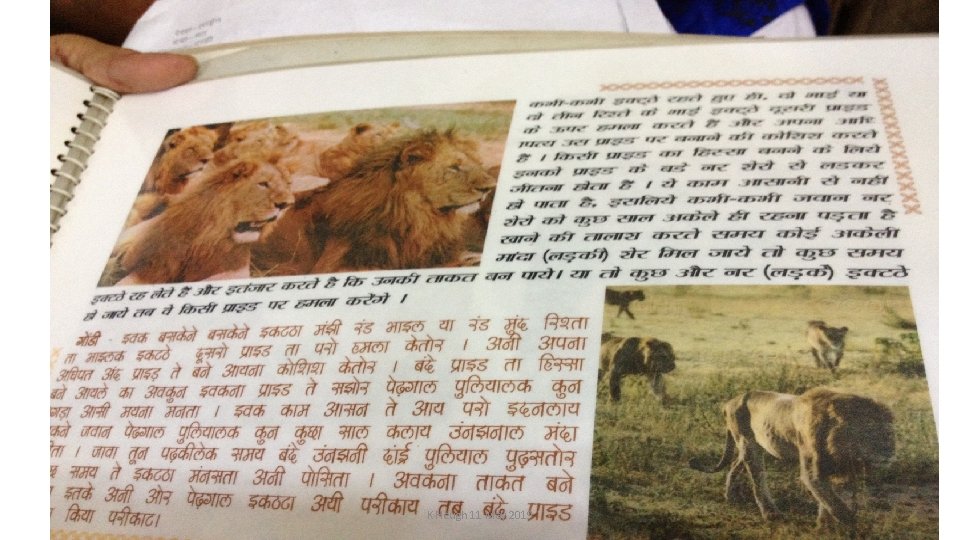 कभी-कभी इक्ट्ते रहते हुए ही, दो भाई या
दो तीन रिश्ते के भाई इक्ट्ते दूसरी प्राइड
के ऊपर हमला करते हैं और अपना आधि
पत्य उस प्राइड पर बनाने की कोसिस करते
हैं । किसी प्राइड का हिस्सा बनने के लिये
इनको प्राइड के बडे नर सेरो से लडकर
जीतना होता हैं । ये काम आसानी से नहीं
हो पाता है, इसलिये कभी-कभी जवान नर
सेरो को कुछ साल अकेले ही रहना पड़ता है
खाने की तालास करते समय कोई अकेली
मांदा (लड़की) शेर मिल जाये तो कुछ समय
इक्टठे रह लेते हैं और इतंजार करते है कि उनकी ताकत बन पाये। या तो कुछ और नर (लड़के) इक्टठे
हो जाये तब वे किसी प्राइड पर हमला करेंगे ।
गोंडी - इवक बसकेने बसकेने इकटठा मंझी रंड भाइल या रंड मुंद रिश्ता
ता भाइलक इकटठे दूसरो प्राइड ता परो हमला केतोर । अनी अपना
अधिपत अंद प्राइड़ ते बने आयना कोशिश केतोर । बंदे प्राइड ता हिस्सा
बने आयले का अवकुन इवकना प्राइड ते सझोर पेढ़गाल पुलियालक कुन
गड़ा आसी मयना मनता । इवक काम आसन ते आय परो इदनलाय
कने जवान पेढगाल पुलियालक कुन कुछा साल कलाय उंनझनाल मंदा
ता । जावा तून पढ़कीलेक समय बंदे उंनझनी दोई पुलियाल पुढ़सतोर
समय ते इकटठा मंनसता अनी पोसिता । अवकना ताकत बने
इतके अनी ओर पेढ़गाल इकठटा अयी परीकाय तब बंदे प्राइड
किया परीकाट।
2019